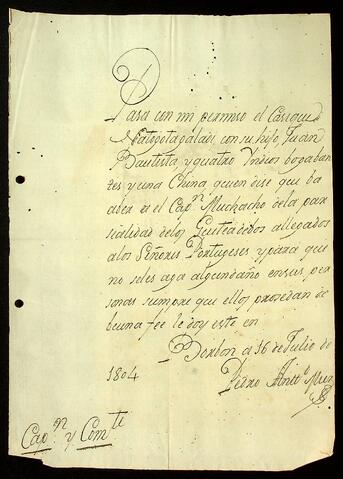 Pasa con mi permiso el Casique
Natogotagaladi, con su hijo Juan
Bautista y quatro Yndios bogaban
tes y una China, quien dise que ba
aver a el Capⁿ Muchacho dela par
sialidad delos Guiteadebos allegados
alos Señores Portugeses y para que
no seles aga algun daño ensus per
sonas siempre que ellos prosedan de
buena fee le doy este en
Borbon a 16 de Julio de
1804
Pedro Antt.º
Capⁿ y Com.te